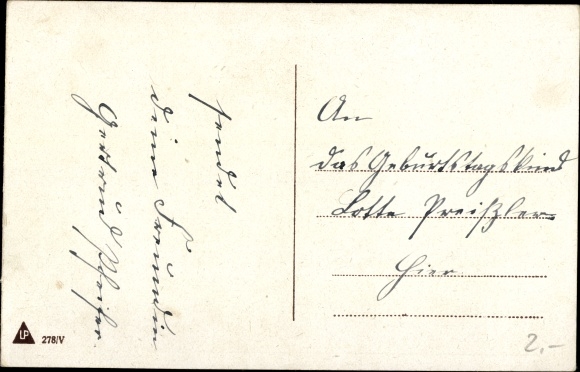 sendet
Deine Freundin
Gertrud
An
das Geburtstagskind
Lotte Preißler
Hier
LP
278/V
2,-